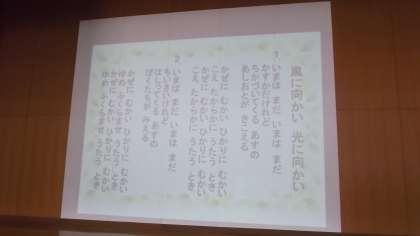 風に向かい 光に向かい
1 いまは まだ いまは まだ
かすかだけれど
ちかづいてくる あすの
あしおとが きこえる
かぜに むかい ひかりに むかい
こえ たからかに うたう とき
かぜに むかい ひかりに むかい
こえ たからかに うたう とき
2 いまは まだ いまは まだ
ちいさいけれど
はしってくる あすの
ぼくたちが みえる
かぜに むかい ひかりに むかい
ゆめ ふくらませ うたう とき
かぜに むかい ひかりに むかい
ゆめ ふくらませ うたう とき